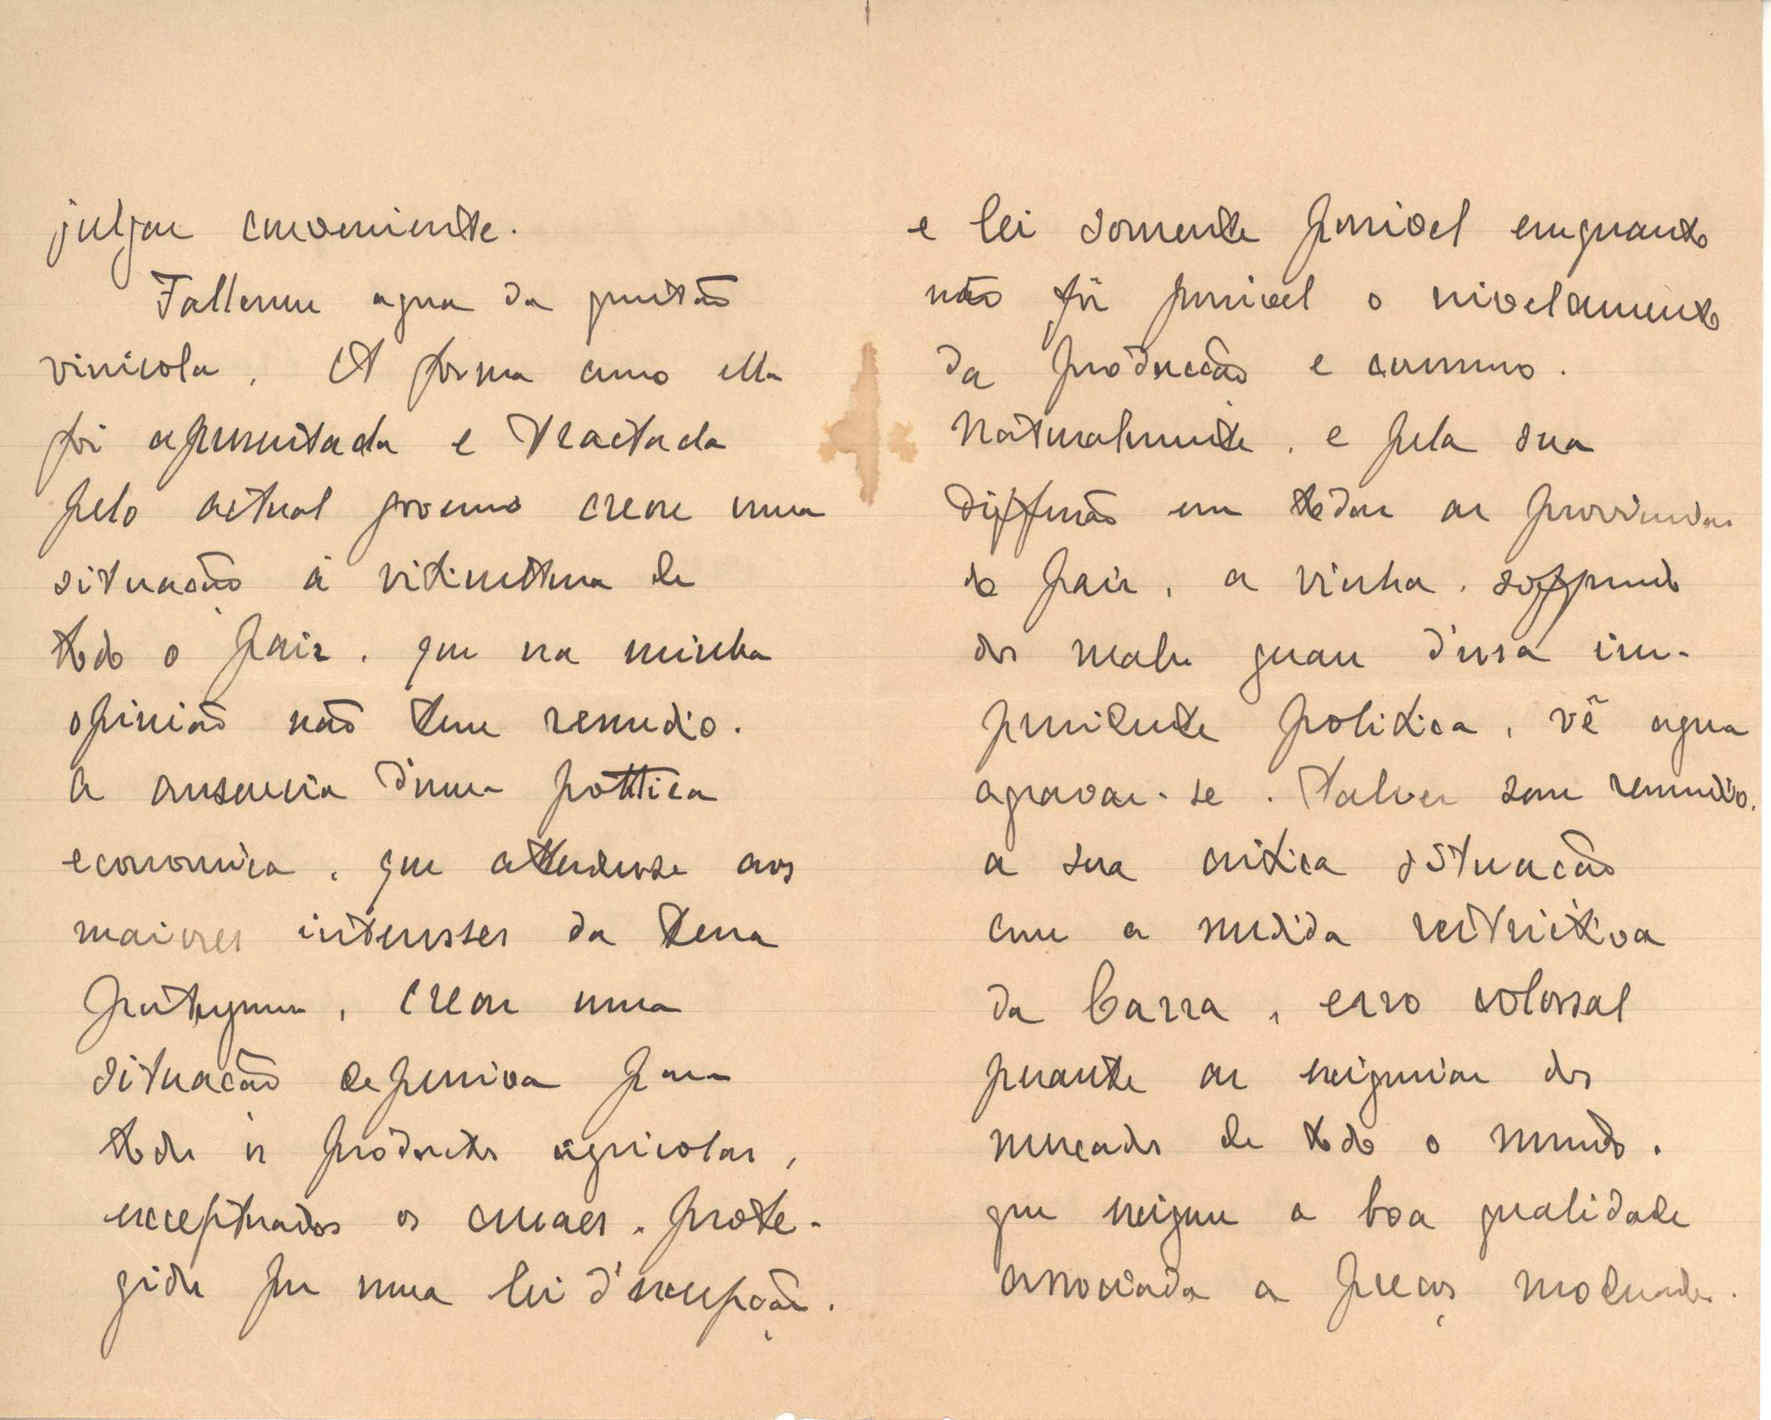 julgar conveniente.
Fallemos agora da questão
vinicola. A forma como ella
foi apresentada e tractada
pelo actual governo creou uma
situação á viticultura de
todo o paiz, que na minha
opinião não tem remedio.
A ausencia d'uma politica
economica, que attendesse aos
maiores interesses da terra
portugueza, creou uma
situação depressiva para
todos os productos agricolas,
exceptuados os cereaes, prote-
gidos por uma lei d'excepção,
e lei somente possivel emquanto
não fôr possivel o nivelamento
da producção e consumo.
Naturalmente, e pela sua
diffusão em todas as provincias
do paiz, a vinha, soffrendo
dos males geraes d'essa im-
previdente politica, vê agora
agravar-se, talvez sem remedio,
a sua critica situação
com a medida restrictiva
da barra, erro colossal
perante as exigencias dos
mercados de todo o mundo,
que exigem a boa qualidade
associada a preços moderados.